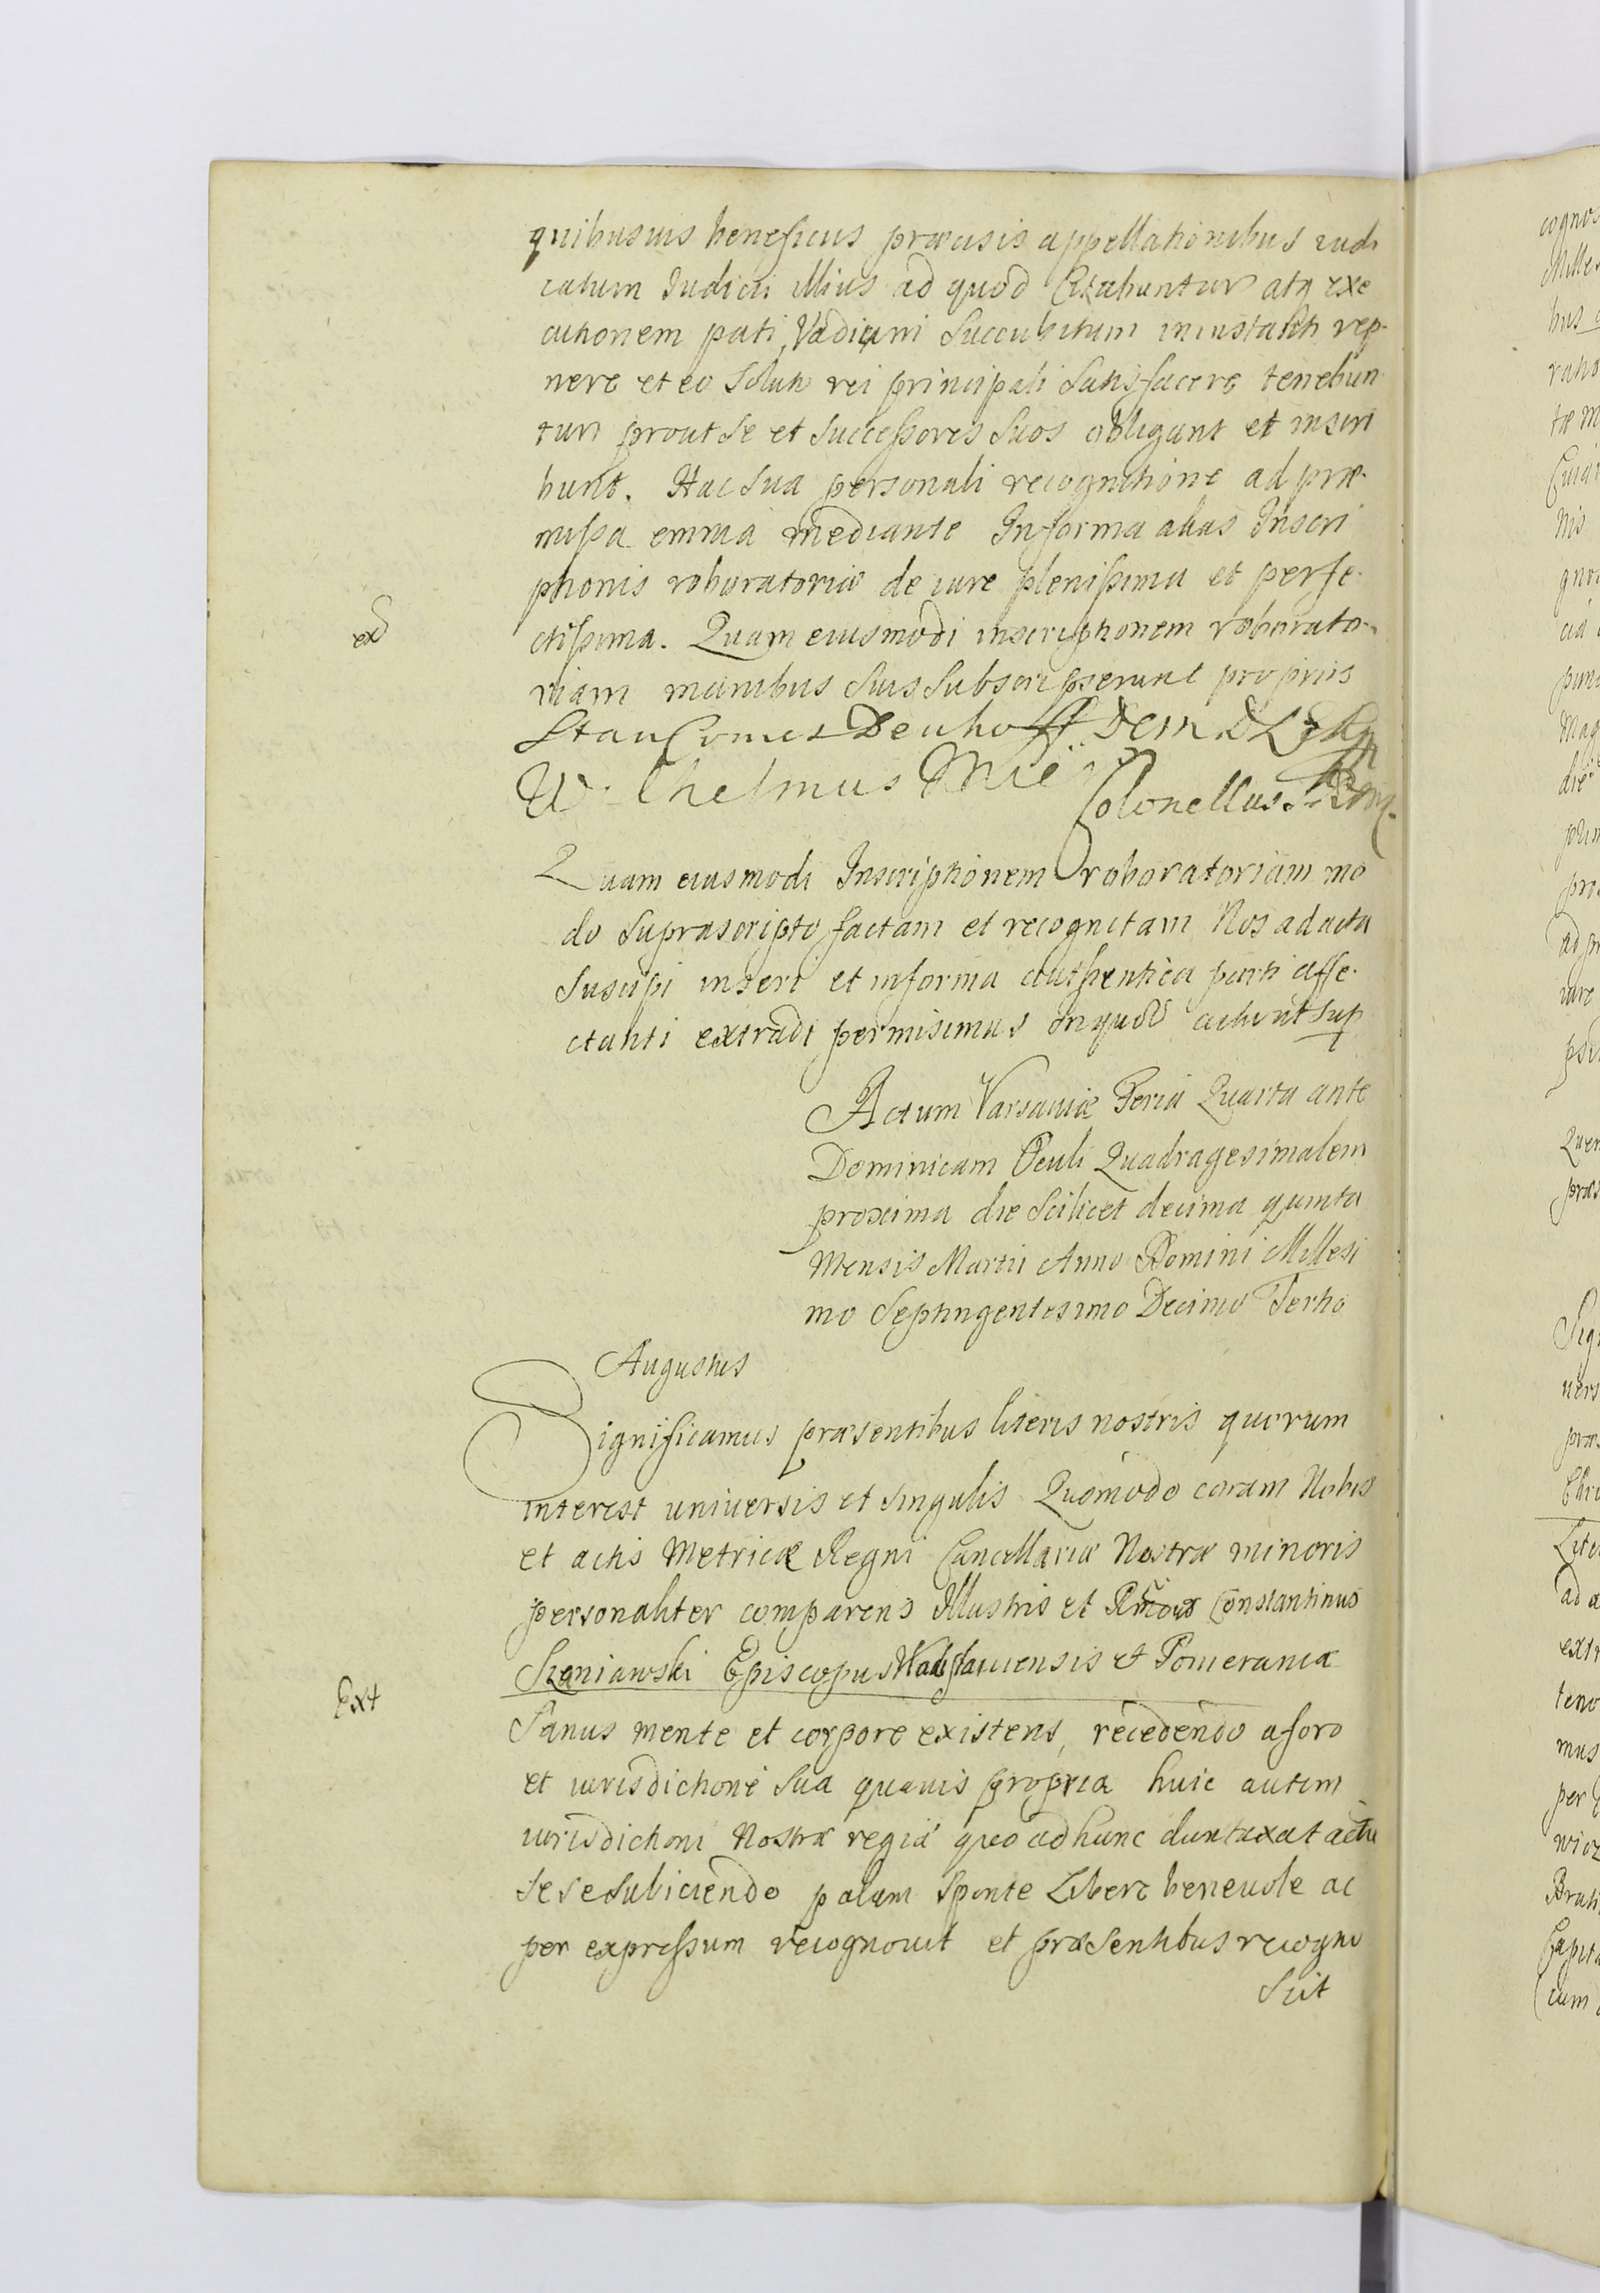 quibusuis beneficiis præcisis appellationibus iudi
catum Iudicii illius ad quod Citabuntur atq exe
cutionem pati, Vadium succubitum in instanti rep-
nere et eo soluto rei principali satisfacere tenebun
tur prout se et successores suos obligant et inscri
bunt. Hac sua personali recognitione ad præ-
missa omnia mediante Informa alias Inscri
ptionis roboratoriæ de iure plenissima et perfe-
ctissima. Quam eiusmodi inscriptionem roborato-
riam manibus suis subscripserunt propriis
ext
Stan Comes Denhoff
Wilhelmus Mier
Colonellus
Quam eiusmodi Inscriptionem roboratoriam mo
do suprascripto factam et recognitam Nos ad acta
suscipi inseri et informa authentica parti affe-
ctanti extradi permisimus in quod actum ut sup
Actum Varsauiæ Feria Quarta ante
Dominicam Oculi Quadragesimalem
proxima die scilicet decima quinta
Mensis Martii Anno Domini Millesi
mo Septingentesimo Decimo Tertio
Augustus
Significamus præsentibus literis nostris quorum
interest uniuersis et singulis Quomodo coram Nobis
et actis Metricæ Regni Cancellariæ Nostræ minoris
personaliter comparens Illustris et Rndus Constantinus
Szaniawski Episcopus Wladislauiensis et Pomeraniæ
Ext
Sanus mente et corpore existens, recedendo a foro
et iurisdictione sua quauis propria huic autem
iurisdictioni Nostræ regiæ quo ad hunc duntaxat actu
se se subiiciendo palam sponte Libere beneuole ac
per expressum recognouit et præsentibus recogno
scit